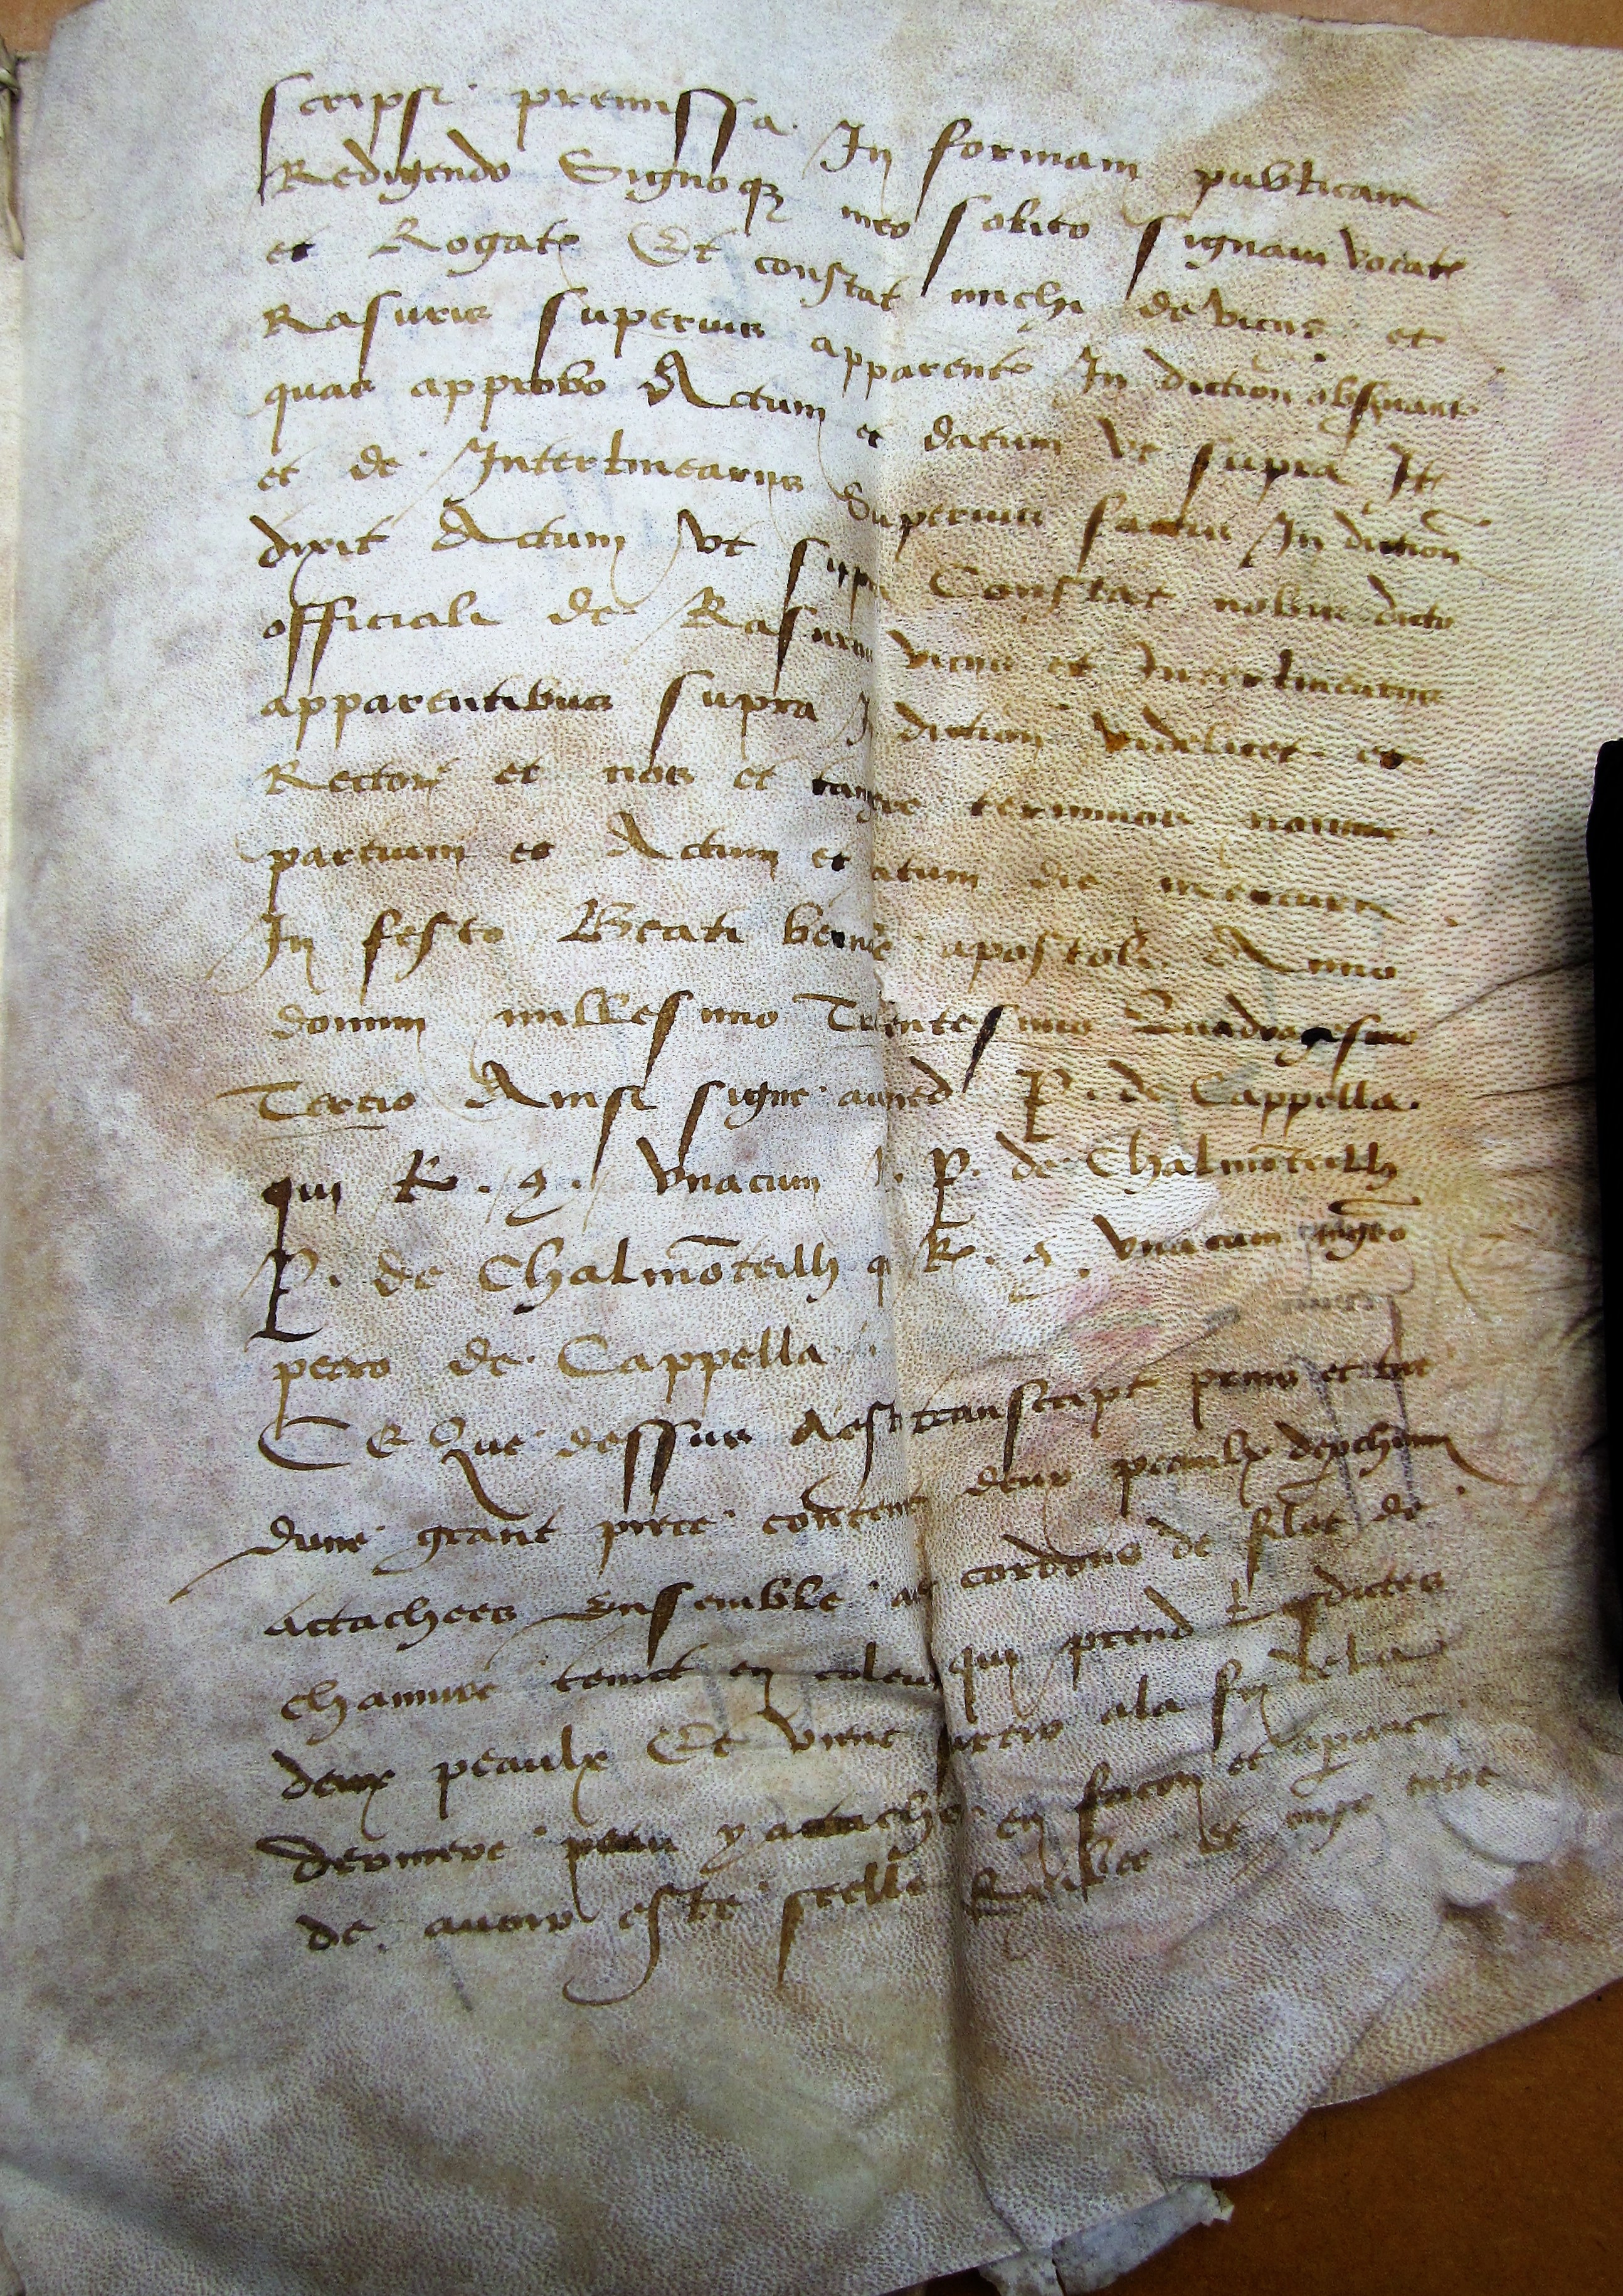 scripsi premissa In formam publicam
Redigendo Signoqz meo solito signam vocatz
et Rogatz Et constat michi de viciis et
Rasuris superius apparentz In diction obseruantz
quas approbo Actum et datum Vt supra Ite
et de Interlineariis Superius factis In diction
dixit Actum Vt supra Constat nobis dicto
officiali de Rasuris viciis et Interlineariis
apparentibus supra In diction videlicet et
Rector et nos et terminos
partium et Actum et datum die mercurii
In festo Beati apostoli Anno
domini millesimo Tricentesimo Quadragesimo
Tercio Ainsi signe P. de Cappella.
qui R. Vnacum P. de Chalmoteilh
P. de Chalmoteilh q R. Vnacum
petro de Cappella
Ce Que dessus A este transcript prins et
dune grant piece contenant deux peaulx
attachees Ensemble cordons de filet de
chanure teinct en coleur qui prend dictes
deux peaulx Et vient ala fin de la
derniere peau y attache en facon et
de auoir este scelle